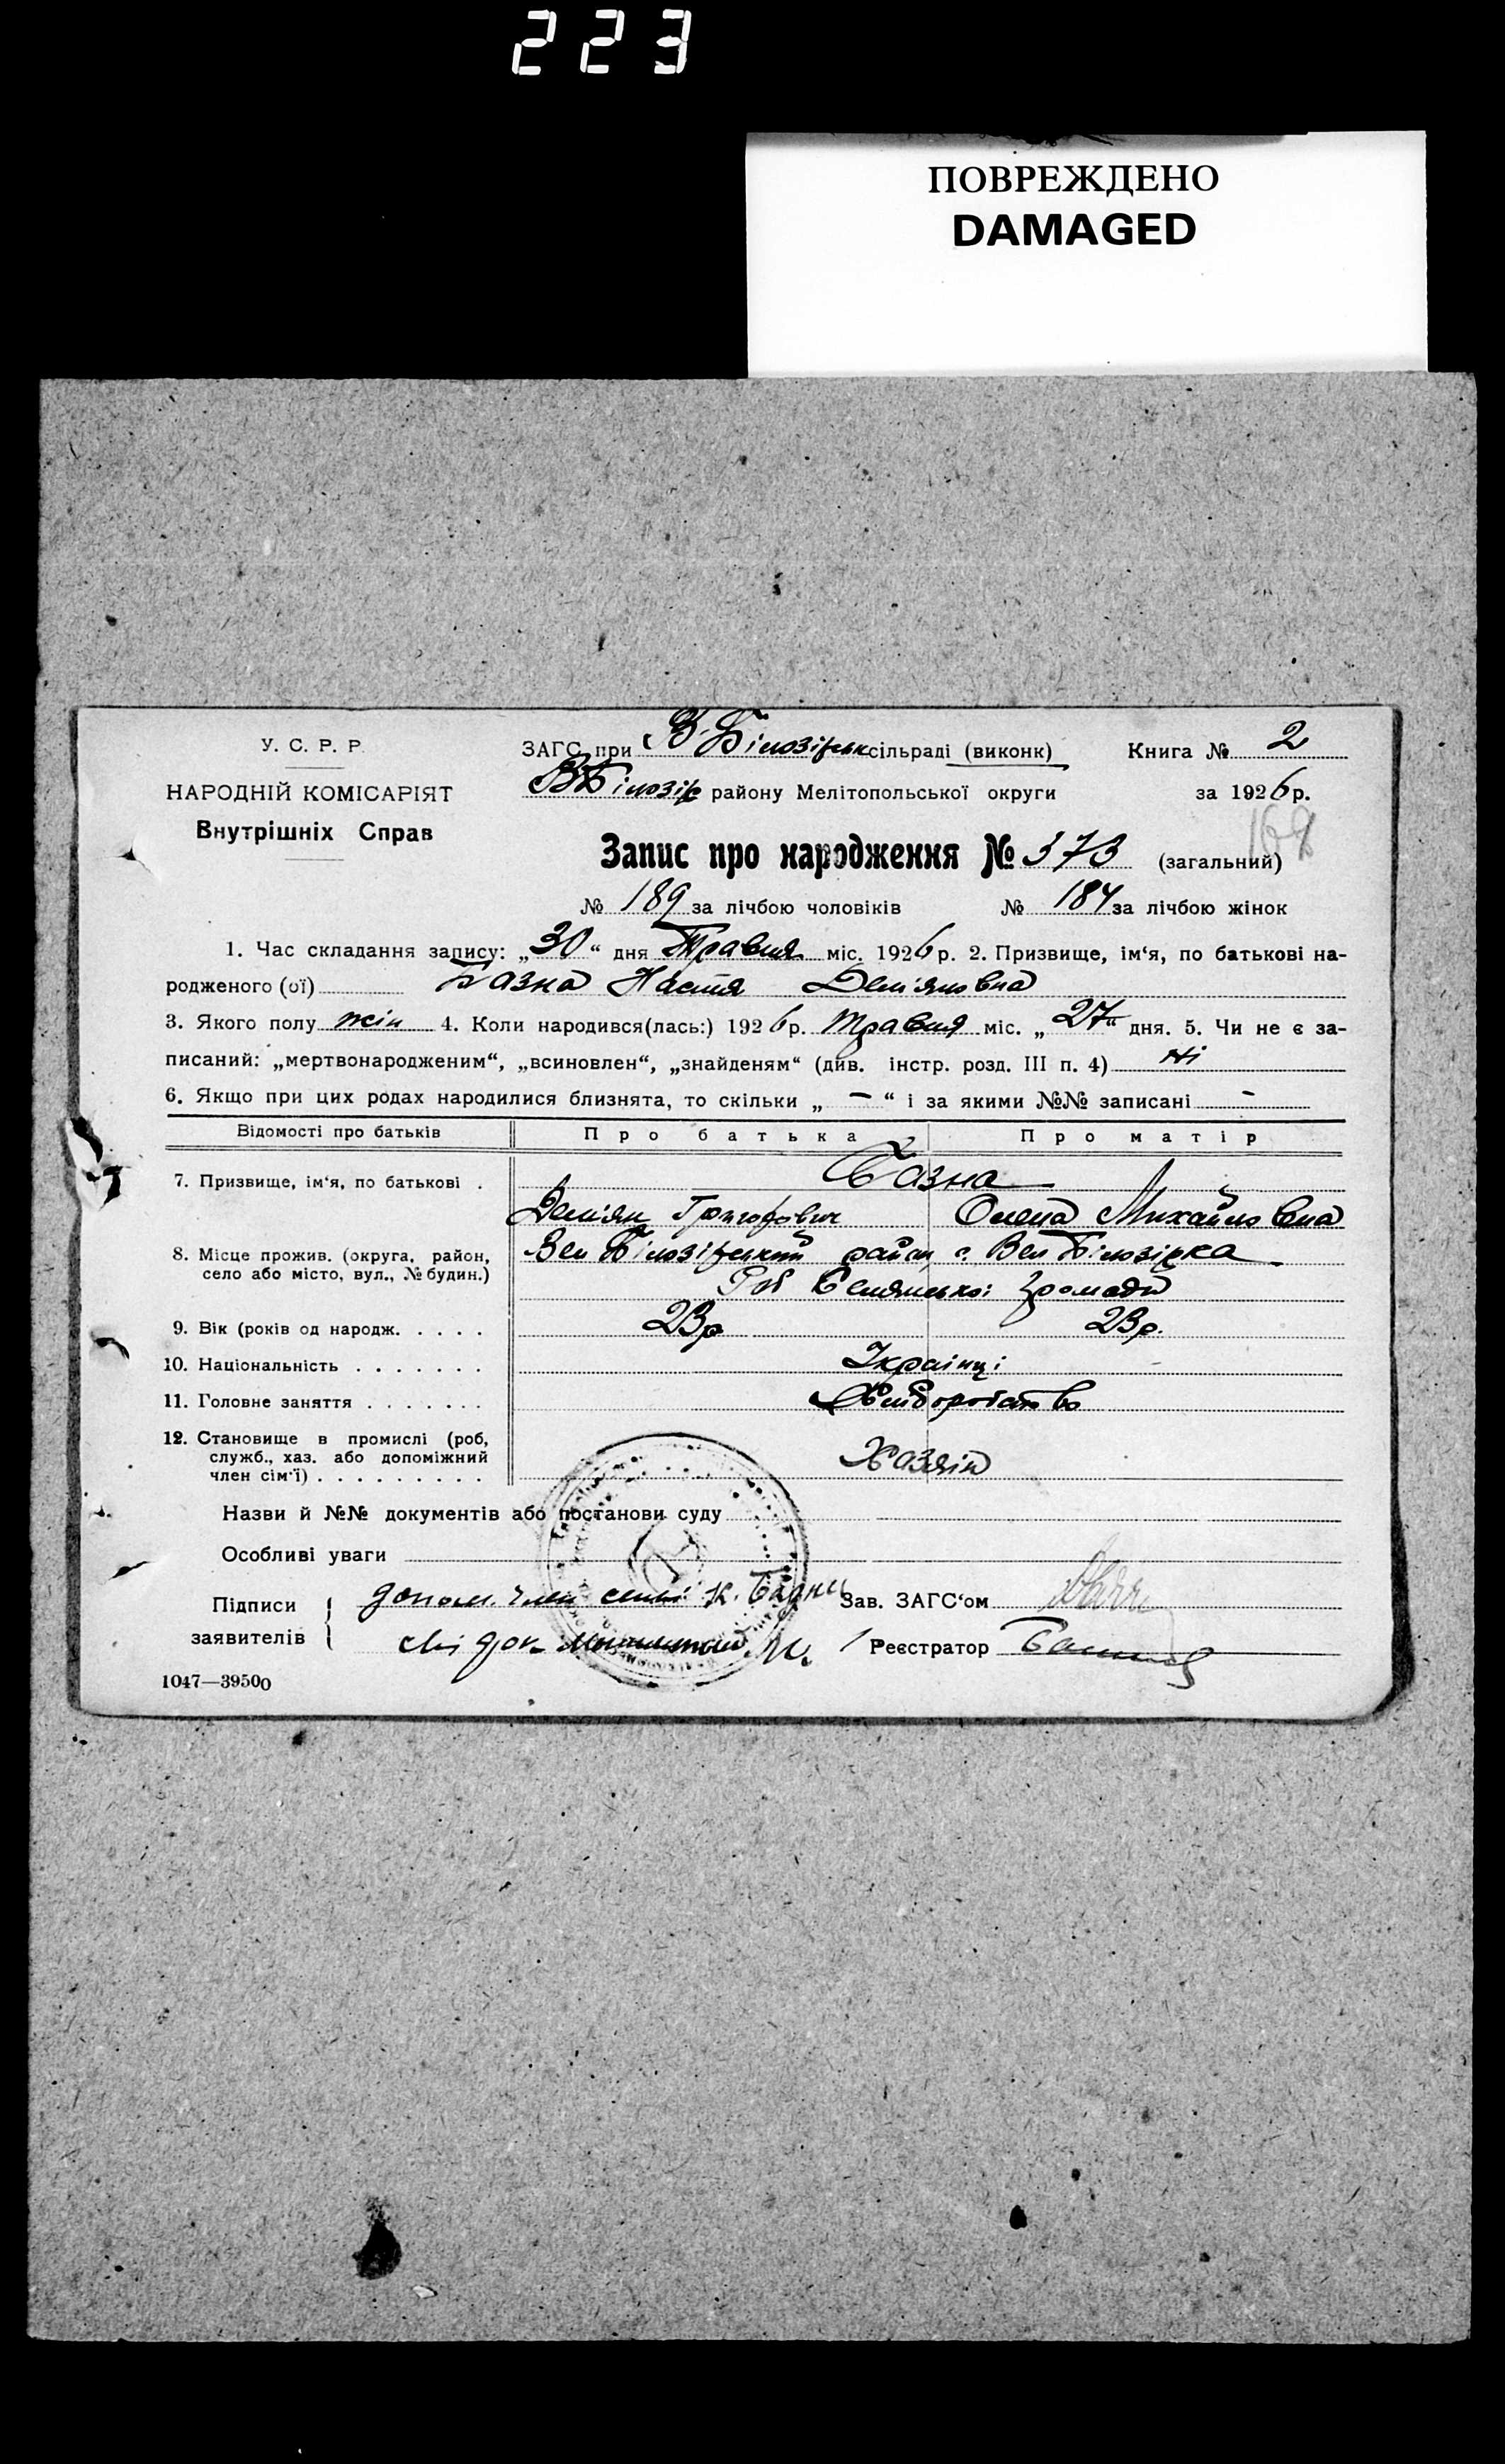 223
ПОВРЕЖДЕНО
DAMAGED
У. С. Р. Р.
НАРОДНІЙ КОМІСАРІЯТ
Внутрішніх Справ
ЗАГС при В.Білозірськ сільраді (виконк) Книга № 2
ВБілозір району Мелітопольської округи за 1926 р.
Запис про народження № 373 (загальний)
№ 189 за лічбою чоловіків № 184 за лічбою жінок
1. Час складання запису: „30“ дня Травня міс. 1926 р. 2. Призвище, ім‘я, по батькові на-
родженого (ої) Базна Настя Дем'яновна
3. Якого полу жін 4. Коли народився(лась:) 1926 р. травня міс. „27“ дня. 5. Чи не є за-
писаний: „мертвонародженим“, „всиновлен“, „знайденям“ (див. інстр. розд. III п. 4) Ні
6. Якщо при цих родах народилися близнята, то скільки „ – “ і за якими №№ записані –
Відомості про батьків Про батька Про матір
7. Призвище, ім‘я, по батькові . Базна
Дем'ян Григорович Олена Михайловна
8. Місце прожив. (округа, район,
село або місто, вул., № будин.)
Вел Білозірський район с. Вел Білозірка
громади
9. Вік (років од народж. . . . . 23р 23р.
10. Національність . . . . . . . Українці
11. Головне заняття . . . . . . . Хліборобство
12. Становище в промислі (роб,
служб., хаз. або допоміжний
член сім‘ї) . . . . . . . . . Хазяїн
Назви й №№ документів або постанови суду
Особливі уваги
Підписи
заявителів
допом. член семьї Н. Базна
Зав. ЗАГС‘ом
Реєстратор
1047—39500